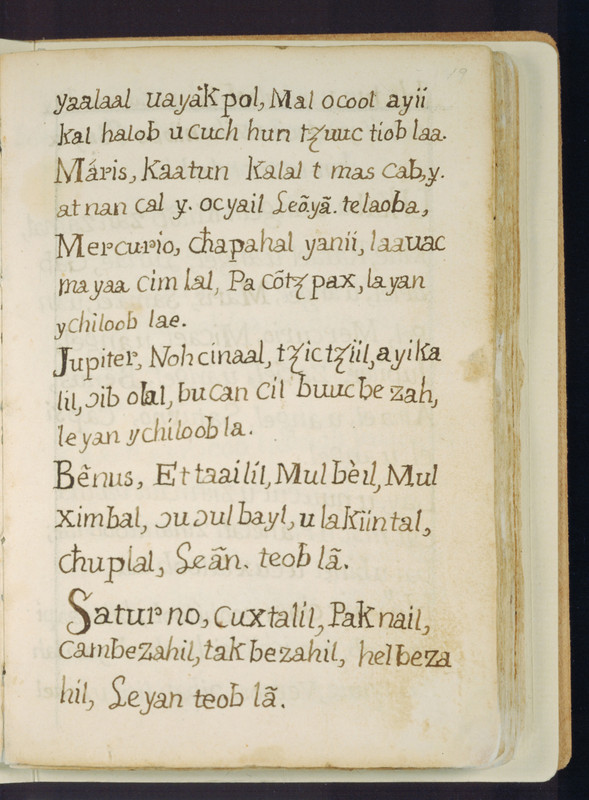 19
yaalaal uayàk pol, Mal ocool ayii
kal halob u cuch hun tɀuuc tiob laa.
Máris, Kaatun Kalal t mas cab, y.
at nan cal y. ocyail Leãyã. telaoba,
Mercurio, cħapahal yanii, laauac
ma yaa cim lal, Pa cõtɀ pax, la yan
ychiloob lae.
Jupiter, Noh cinaal, tɀic tɀiil, ayika
lil, ɔib olal, bu can cil buuc be zah,
le yan ychiloob la.
Bẽnus, Et taailil, Mul bèil, Mul
ximbal, ɔu ɔul bayl, u la kiintal,
cħuplal, Leãn. teob lã.
Saturno, Cuxtalil, Pak nail,
cambezahil, tak bezahil, helbeza
hil, Le yan teob lã.